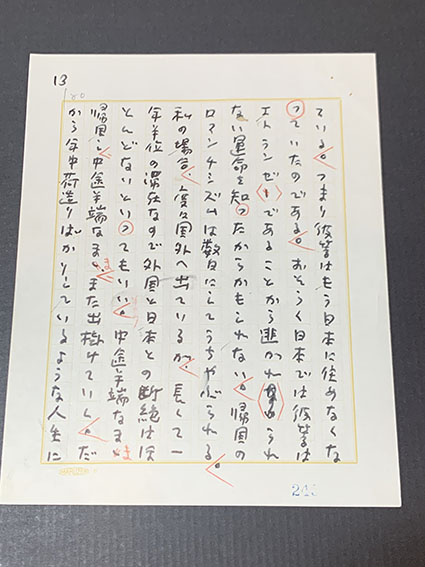 13
80
ている。つまり彼等はもう日本に住めなくな
っていたのである。おそらく日本では彼等は
エトランゼーであることから逃がれられ
ない運命を知ったからかもしれない。帰国の
ロマンチシズムは数日にしてうちやぶられる。
私の場合、度々国外へ出ているが、長くて一
年半位の滞在なので外国と日本との断絶はほ
とんどないといってもいい。中途半端なまま
帰国し、中途半端なまま、また出掛けていく。だ
から年中荷造りばかりしているような人生に